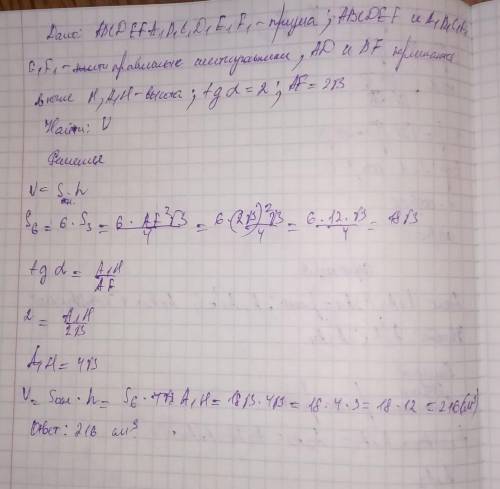 Дано: ABCDEFA₁B₁C₁D₁E₁F₁ - призма; ABCDEF и A₁B₁C₁D₁
E₁F₁ - правильные шестиугольники, AD и BF
H, A₁H - высота; tg α = 2; AF = 2√3
Найти: V
Решение
V = Sосн. · h
S₆ = 6 · S₃ = 6 · AF²√3/4 = 6 · (2√3)²√3/4 = 6 · 12 · √3/4 = 18√3
tg α = A₁H/AF
2 = A₁H/2√3
A₁H = 4√3
V = Sосн · h = S₆ · A₁H = 18√3 · 4√3 = 18 · 4 · 3 = 18 · 12 = 216 (см³)
Ответ: 216 см³